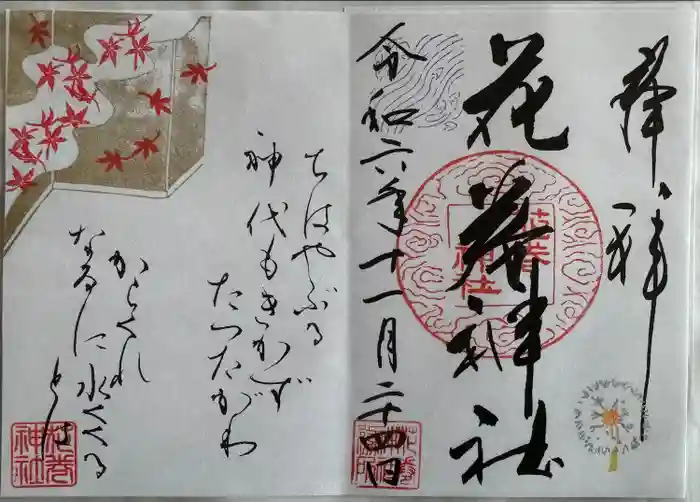 奉拝
花巻神社
令和六年十一月二十四日
花巻
神社
ちはやぶる
神代もきかず
たつたがわ
からくれ
なゐに水くくる
とは
花巻
神社